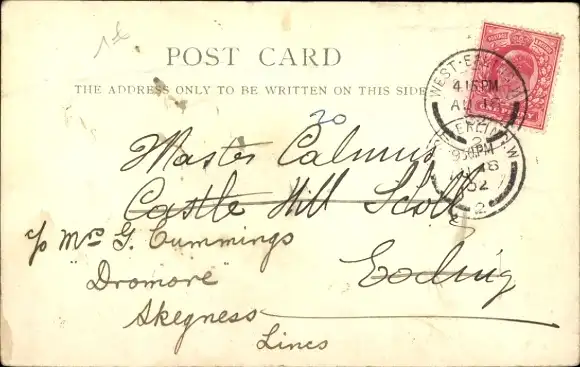 1/6
POST CARD
THE ADDRESS ONLY TO BE WRITTEN ON THIS SIDE
WEST-EALING.W
4.15PM
AU 18
02
EALING.W
9.30PM
AU 18
02
2
20
Master Calmus
Castle Hill School
Ealing
c/o Mrs G. Cummings
"Dromore"
Skegness
Lincs